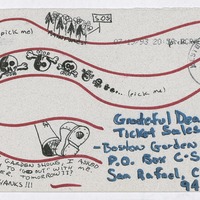 S.O.S
(pick me)
(pick me)
Grateful Dea
Ticket Sales
-Boston Garden
P.O. Box C-S
San Rafael, C
94
GARDEN SHOWS, I ASKED
"GO OUT" WITH ME.
TOMORROW!!!)
HANKS!!!